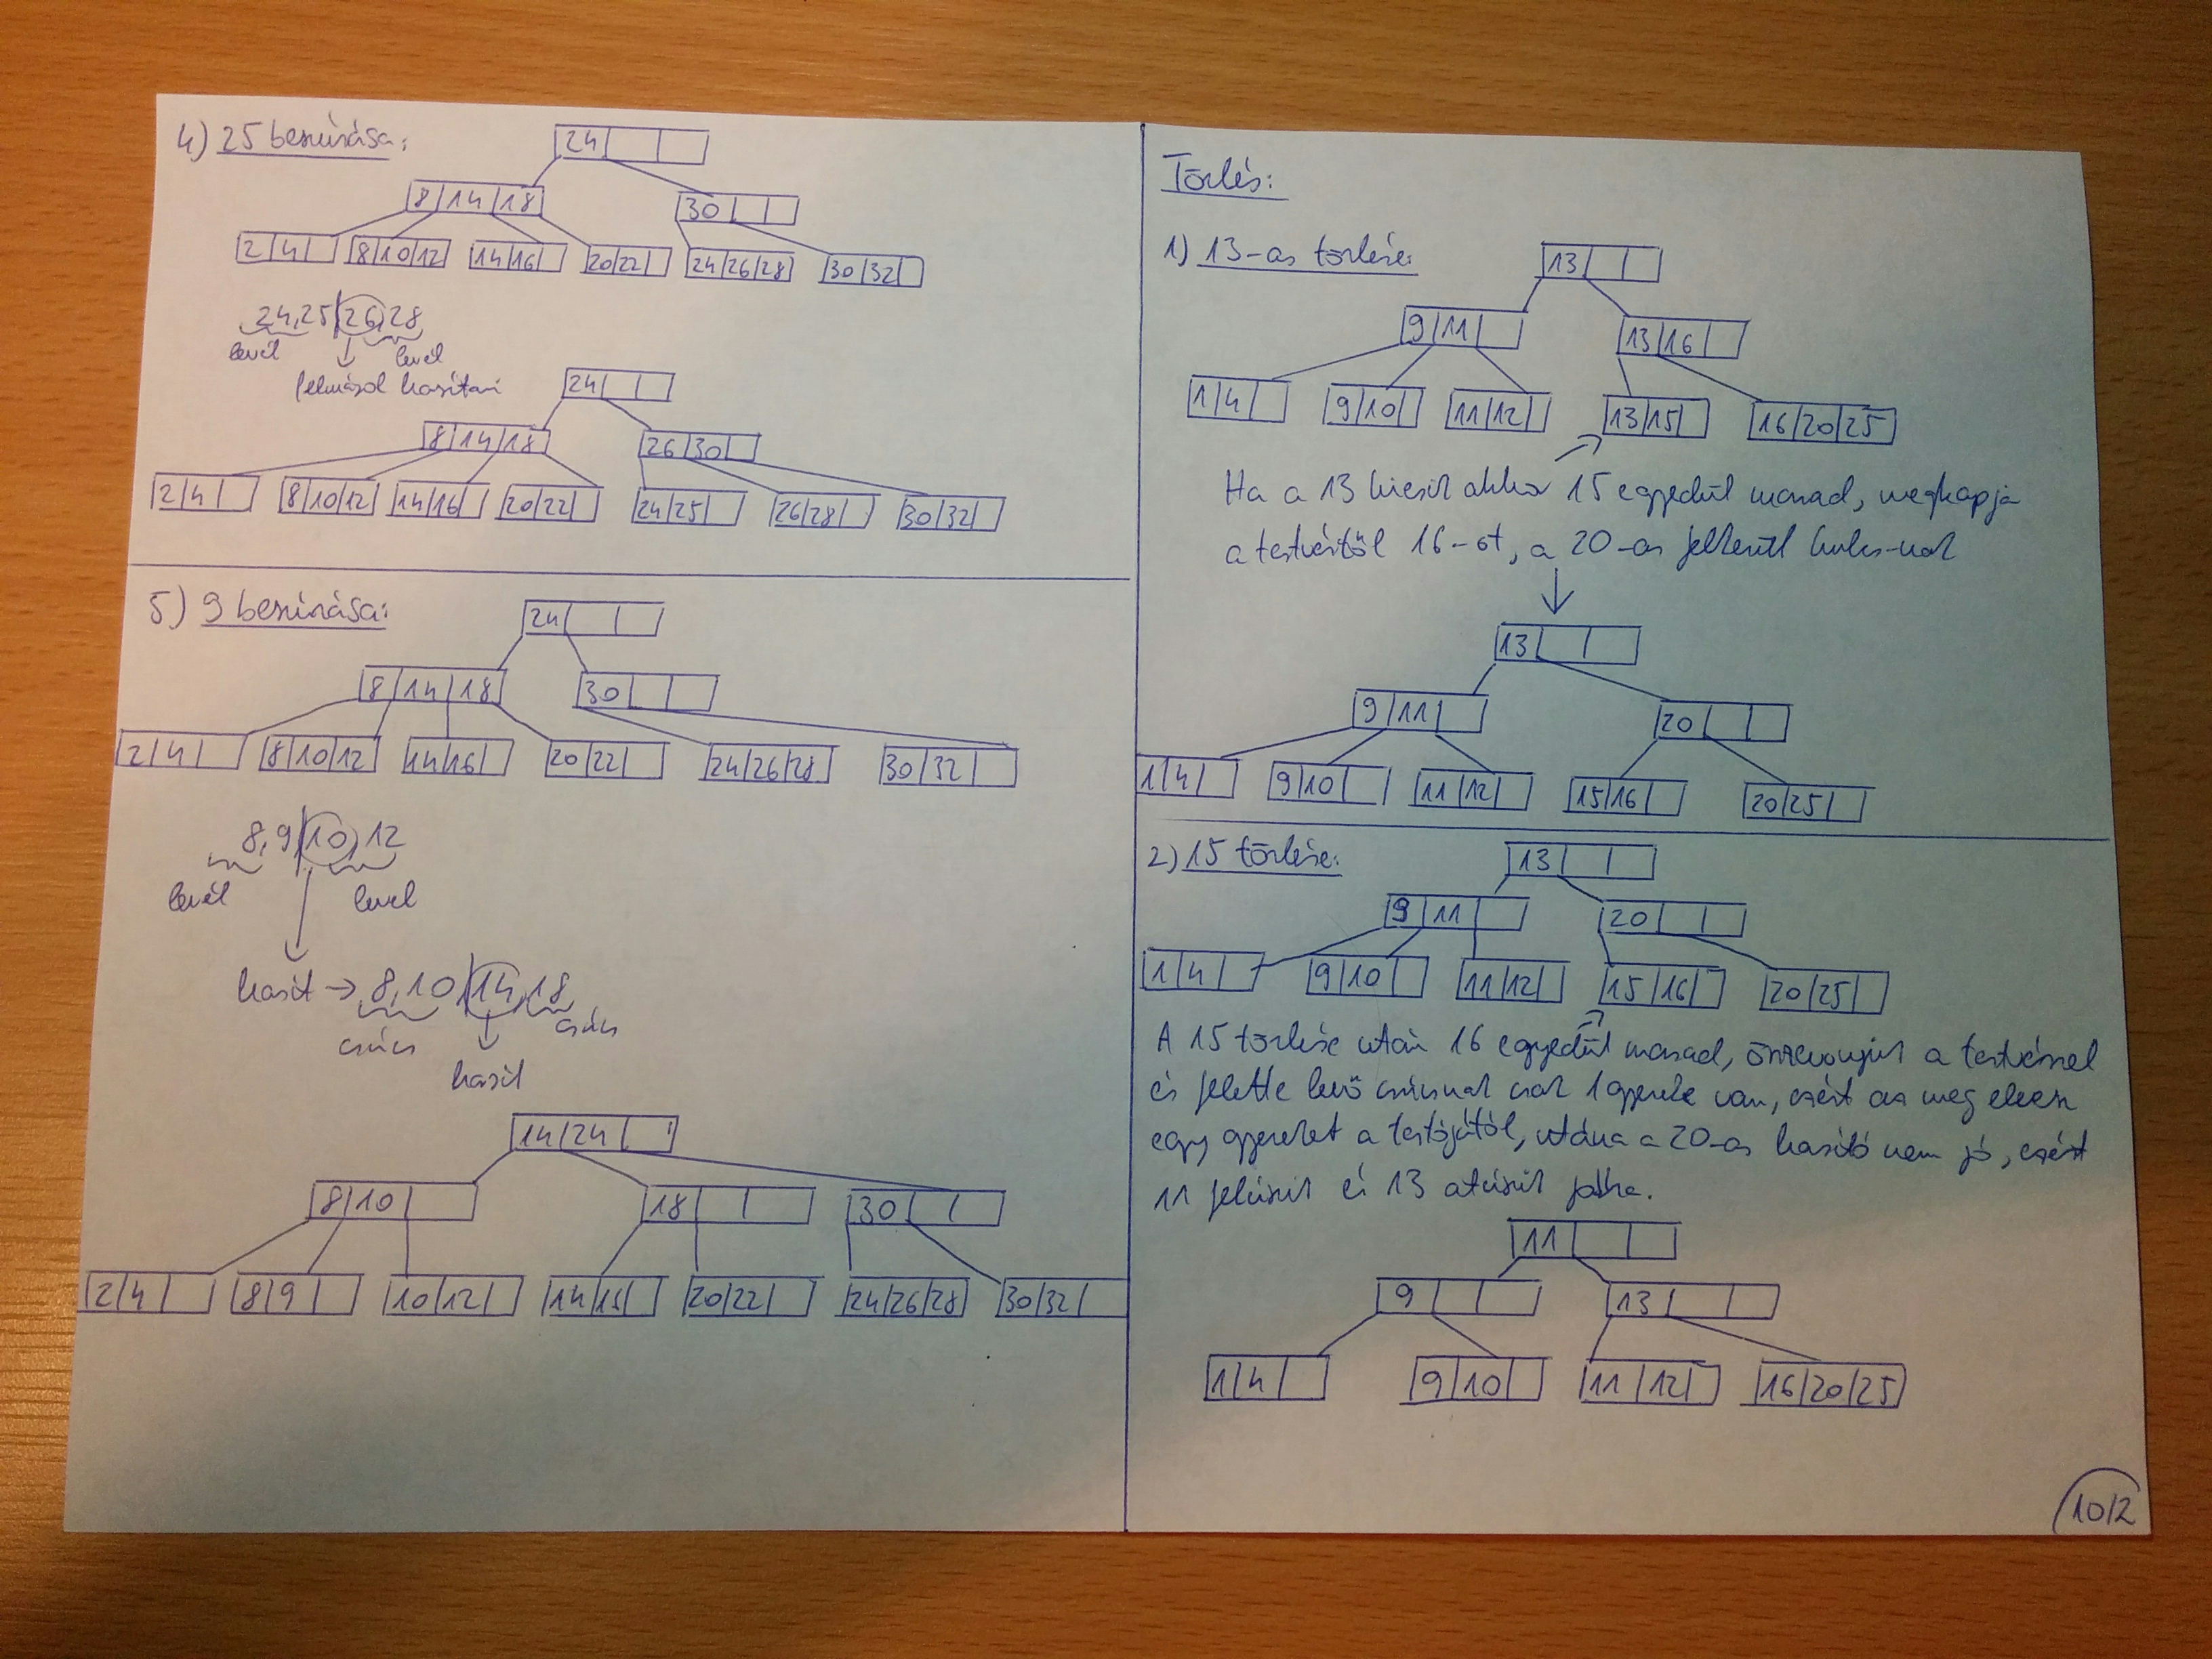 4) 25 beszúrása:
24
8 14 18
30
2 4
8 10 12
14 16
20 22
24 26 28
30 32
24,25 26,28
levél
levél
felmásol hasítani
24
8 14 18
26 30
2 4
8 10 12
14 16
20 22
24 25
26 28
30 32
5) 9 beszúrása:
24
8 14 18
30
2 4
8 10 12
14 16
20 22
24 26 28
30 32
8,9 10,12
levél
levél
hasít → 8,10 14,18
csúcs
csúcs
hasít
14 24
8 10
18
30
2 4
8 9
10 12
14 15
20 22
24 26 28
30 32
Törlés:
1) 13-as törlése:
13
9 11
13 16
1 4
9 10
11 12
13 15
16 20 25
Ha a 13 kiesik akkor 15 egyedül marad, megkapja
a testvértől 16-ot, a 20-as felkerül kulcs-nak
13
9 11
20
1 4
9 10
11 12
15 16
20 25
2) 15 törlése:
13
9 11
20
1 4
9 10
11 12
15 16
20 25
A 15 törlése után 16 egyedül marad, összevonjuk a testvérrel
és felette levő csúcsnak csak 1 gyereke van, ezért az meg
egy gyereket a utána a 20-as hasító nem jó, ezért
11 felcsúszik és 13 átcsúszik
11
9
13
1 4
9 10
11 12
16 20 25
10/2